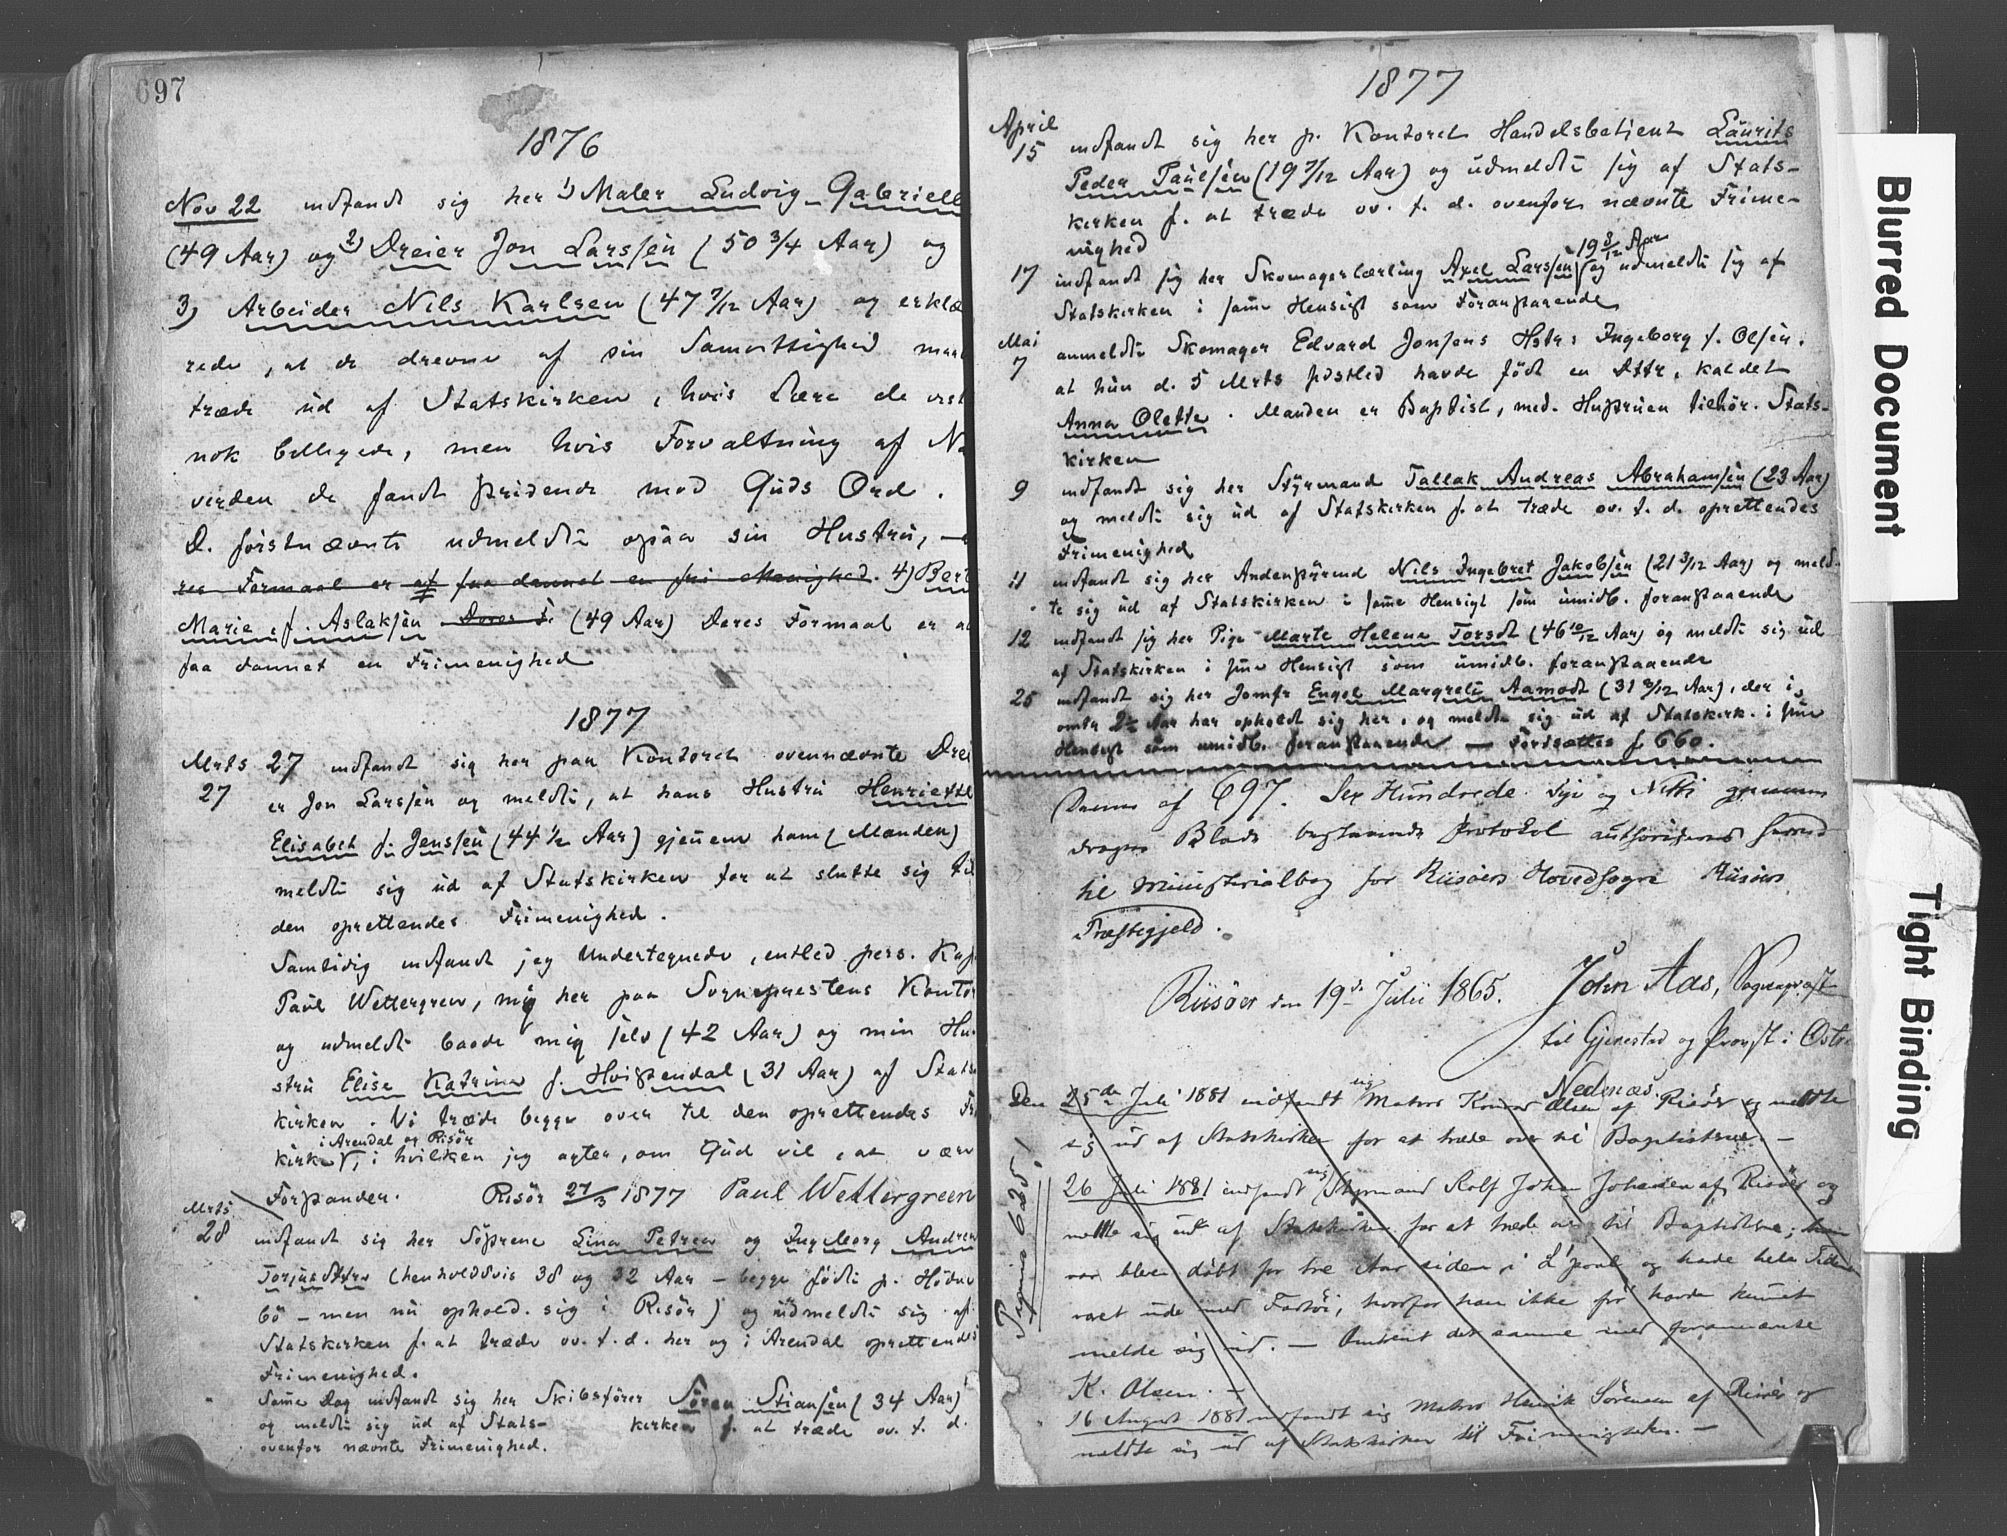 697
1876
Nov 22 indfandt sig her 1) Maler Ludvig Gabriells
(49 Aar) og 2) Dreier Jon Larssen (50 3/4 Aar) og
3) Arbeider Nils Karlsen (47 7/12 Aar) og erklæ
rede, at de drevne af sin Samvittighed maa
træde ud af Statskirken, hvis Lære de vist
nok billigede, men hvis Forvaltning af Na
verden de fandt stridende mod Guds Ord.
D. førstnævnte udmeldte ogsaa sin Hustru,
res Formaal er at faa dannet en fri Menighed. 4) Bert
Marie f. Aslaksen (49 Aar) Deres Formaal er at
faa dannet en Frimenighed
1877
Mrts 27 indfandt sig her paa Kontoret ovennævnte Drei
27 er Jon Larssen og meldte, at hans Hustru Henriette
Elisabet f. Jenssen (44 1/2 Aar) gjennem ham (Manden)
meldte sig ud af Statskirken for at slutte sig til
den oprettendes Frimenighed.
Samtidig indfandt jeg Undertegnede, entled. pers. Kap
Paul Wettergren, mig her paa Sogneprestens Kontor
og udmeldte baade mig selv (42 Aar) og min Hu-
stru Elise Katrine f. Hvistendal (31 Aar) af Stats
kirken. Vi træde begge over til den oprettendes Fri
i Arendal og Risør
kirke, i hvilken jeg agter, om Gud vil, at være
Forstander. Risør 27/3 1877 Paul Wettergreen
Mrts
28 indfandt sig her Søstrene Lina Petrea og Ingeborg Andrea
Torjusdttre (henholdsvis 38 og 32 Aar – begge født p. Hødne
bø – men nu ophold. sig i Risør) og udmeldte sig af
Statskirken f. at træde ov. t. d. her og i Arendal oprettendes
Frimenighed.
Same Dag indfandt sig her Skibsfører Søren Stiansen (34 Aar)
og meldte sig ud af Stats- kirken f. at træde ov. t. d.
ovenfor nævnte Frimenighed.
1877
April
15 indfandt sig her p. Kontoret Handelsbetjent Laurits
Peder Paulsen (19 7/12 Aar) og udmeldte sig af Stats-
kirken f. at træde ov. t. d. ovenfor nævnte Frime-
nighed
19 8/12 Aar
17 indfandt sig her Skomagerlærling Axel Larssen og udmeldte sig af
Statskirken i same Hensigt som Foranstaaende
Mai
7 anmeldte Skomager Edvard Jonsens Hstr: Ingeborg f. Olsen,
at hun d. 5 Mrts sistled havde født en Dttr, kaldet
Anna Olette. Manden er Baptist, med. Hustruen tilhør. Stats-
kirken
9 indfandt sig her Styrmand Tallak Andreas Abrahamsen (23 Aar)
og meldte sig ud af Statskirken f. at træde ov. t. d. oprettendes
Frimenighed
11 indfandt sig her Andenstyrmd Nils Ingebret Jakobsen (21 3/12 Aar) og meld-
te sig ud af Statskirken i same Hensigt som umidb. foranstaaende
12 indfandt sig her Pige Marte Helene Torsdt (46 10/12 Aar) og meldte sig ud
af Statskirken i sme Hensigt som umidb. foranstaaende
25 indfandt sig her Jomfr Engel Margrete Aamodt (31 8/12 Aar), der i
omtr 2 1/2 Aar har opholdt sig her, og meldte sig ud af Statskirk. i sme
Hensigt som umidb. foranstaaende — Fortsættes f. 660.
Denne af 697. Sex Hundrede Syv og Nitti gjennem
dragne Blade bestaaende Protokol authoriseres herved
til Ministerialbog for Riisøers Hovedsogn Riisøers
Præstegjeld.
Riisøer den 19de Julii 1865. John Aas, Sognepræst
til Gjerestad og Provst i Østre
Nedenæs.
Den 25de Juli 1881 indfandt sig Matros Konrad Olsen af Risør og meldte
sig ud af Statskirken for at træde over til Baptisterne. —
26 Juli 1881 indfandt sig Styrmand Rolf Johan Johansen af Risør og
meldte sig ud af Statskirken for at træde over til Baptisterne; han
var bleven døbt for tre Aar siden i L'pool og havde hele Tiden
været ude med Fartøi, hvorfor han ikke før havde kunnet
melde sig ud. — Omtrent det samme med forannævnte
K. Olsen. —
16 August 1881 indfandt sig Matros Henrik Sørensen af Risør og
meldte sig ud af Statskirken til Frimenigheden. —
Pagina 625!
Blurred Document
Tight Binding